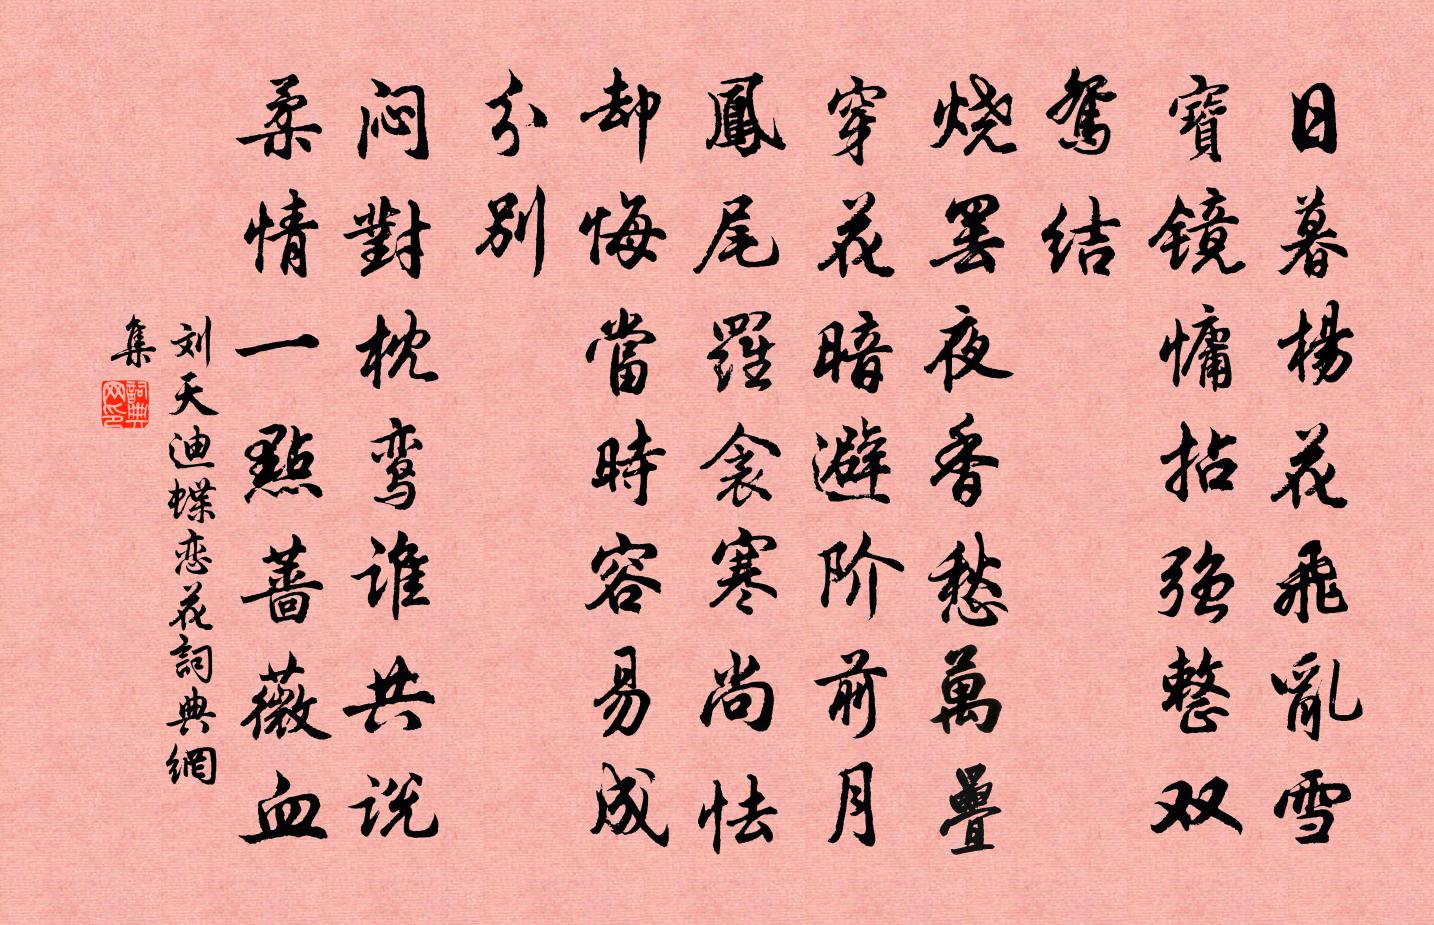 日暮楊花飛亂雪
寶镜慵拈强整双
鸳结
烧罢夜香愁萬疊
穿花暗避阶前月
鳳尾羅衾寒尚怯
却悔當時容易成
分别
闷對枕鸾谁共说
柔情一點蔷薇血
刘天迪蝶恋花詞典網
集
詞典网印